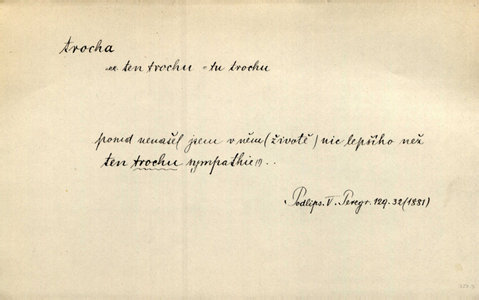 trocha
ten trochu = tu trochu
poněd nenašel jsem v něm (životě) nic lepšího než
ten trochu sympathie (!) . .
Podlips. V. Peregr. 129. 32 (1881)